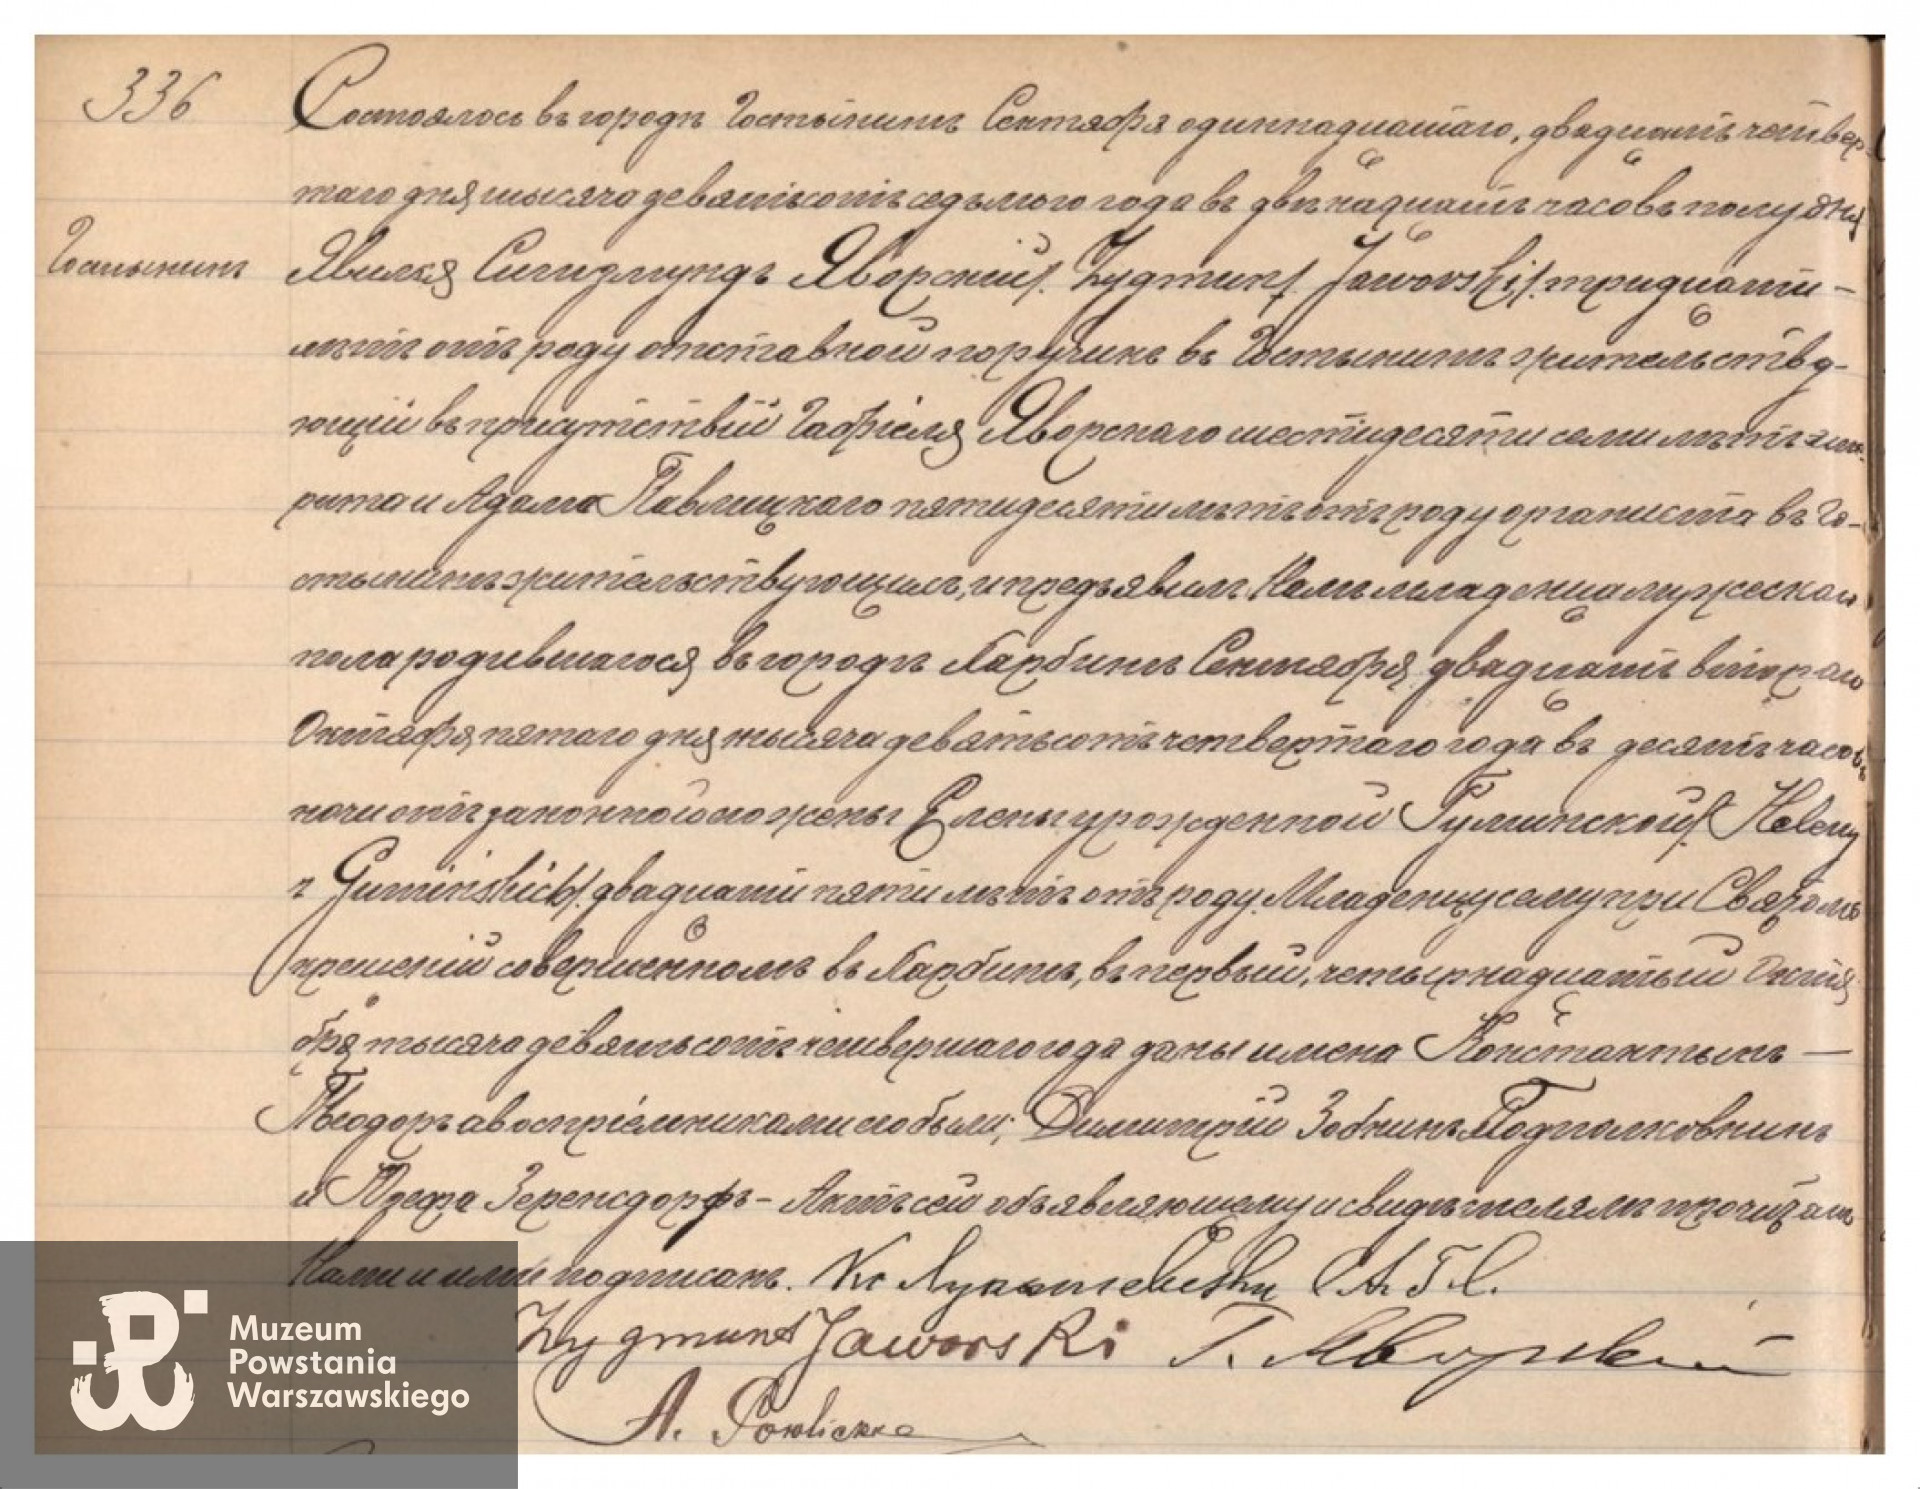 336
Состоялось въ городѣ Гостынинѣ Сентября одиннадцатаго, двадцать четвер-
таго дня тысяча девятьсотъ седьмого года въ двѣнадцать часовъ полудня
Гостынинъ
Явился Сигизмундъ Яворскій /Zygmunt Jaworski/ тридцати-
лѣтъ отъ роду отставной поручикъ въ Гостынинѣ жительству-
ющій въ присутствіи Габріеля Яворскаго шестидесяти семи лѣтъ эме-
рита и Адама Павлицкаго пятидесяти лѣтъ отъ роду органиста въ Го-
стынинѣ жительствующихъ, и предъявилъ Намъ младенца мужескаго
пола родившагося въ городѣ Харбинѣ Сентября двадцать втораго
Октября пятаго дня тысяча девятьсотъ четвертаго года въ десять часовъ
ночи отъ законной его жены Елены урожденной Гуминской /Heleny
z Gumińskich/ двадцати пяти лѣтъ отъ роду. Младенцу сему при Святомъ
крещеніи совершенномъ въ Харбинѣ, въ первый, четырнадцатый Октя
бря тысяча девятьсотъ четвертаго года даны имена Константынъ —
Теодоръ а воспріемниками его были; Димитрій Зобнинъ Подполковникъ
и Юзефа Зеренсдорфъ – Актъ сей объявляющему и свидѣтелямъ прочитанъ
Нами и ими подписанъ. Кс А. Г. С.
Zygmunt Jaworski Г. Яворскій
A. Pawlicki
Muzeum
Powstania
Warszawskiego